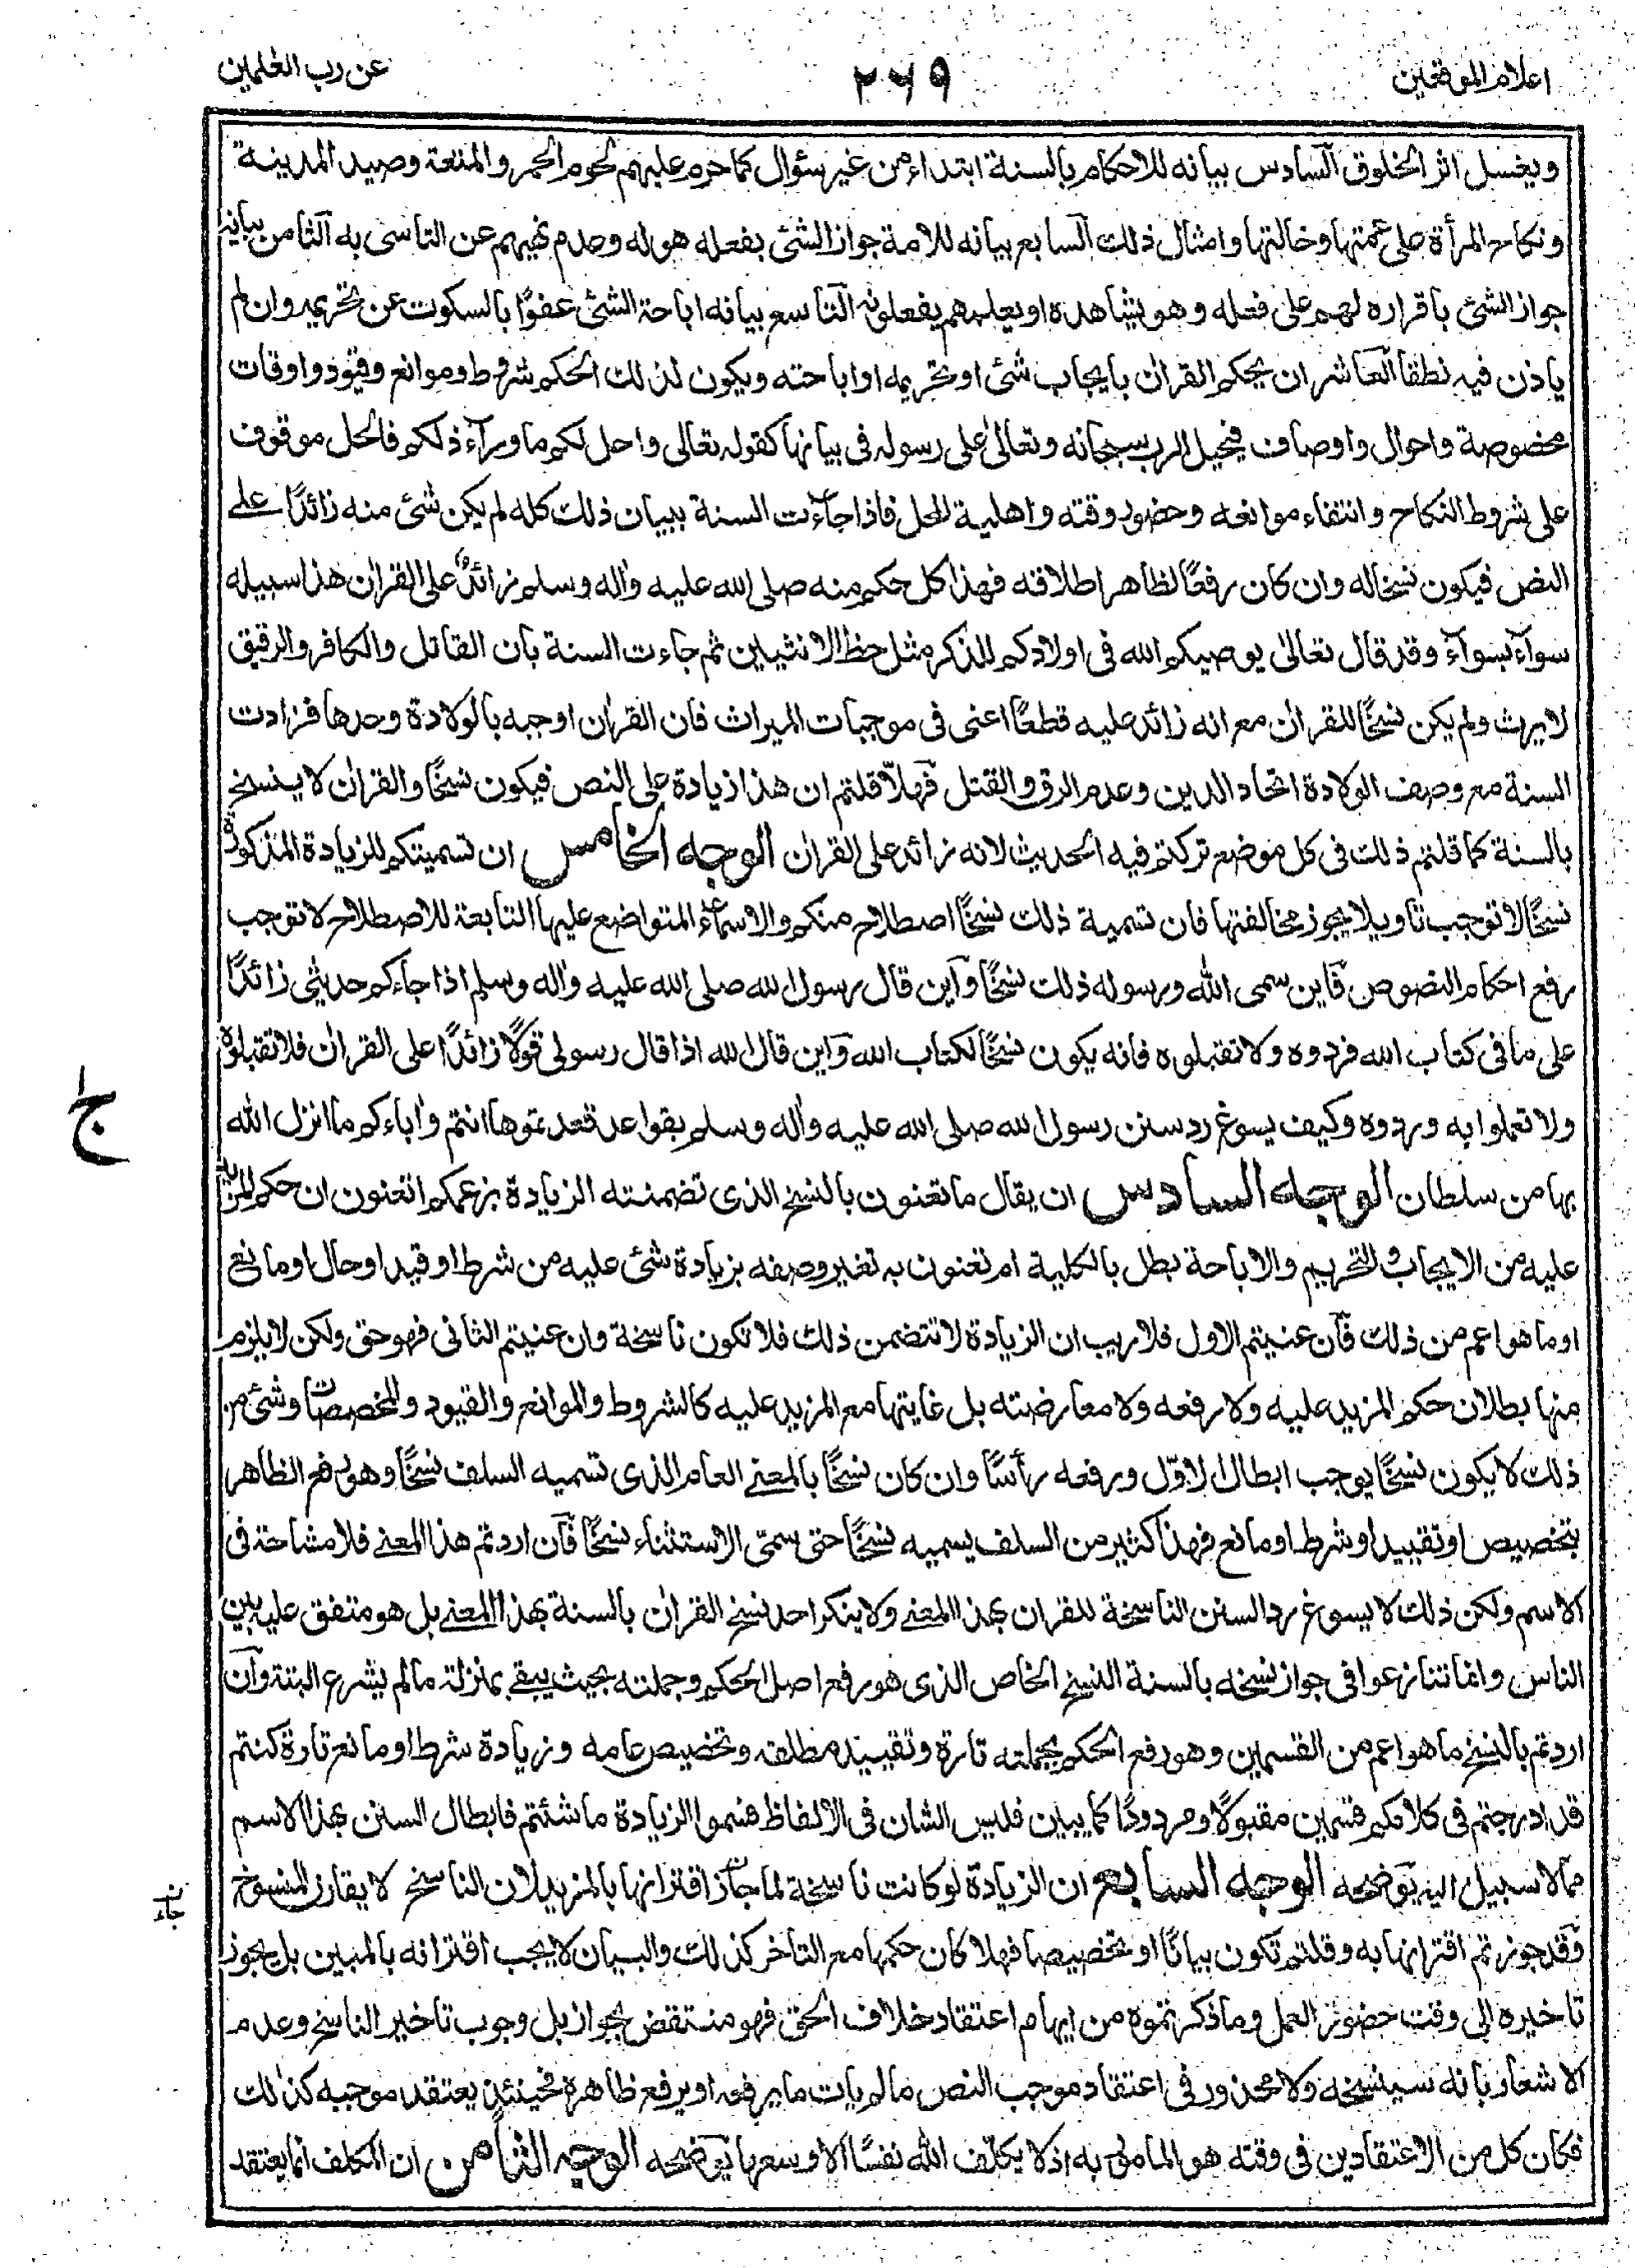 اعلام الموقعين
٢٦٩
عن رب العلمين
ويغسل اثر الخلوق السادس بيانه للاحكام بالسنة ابتداء من غير سؤال كما حرم عليهم لحوم الحمر والمتعة وصيد المدينة
ونكاح المرأة على عمتها وخالتها وامثال ذلك السابع بيانه للامة جواز الشئ بفعله هو له وعدم نهيهم عن التاسى به الثامن بيانه
جواز الشئ باقراره لهم على فعله وهو يشاهده او يعلمهم يفعلونه التاسع بيانه اباحة الشئ عفوًا بالسكوت عن تحريمه وان لم
ياذن فيه نطقا العاشر ان يحكم القران بايجاب شئ او تحريمه او اباحته ويكون لذلك الحكم شروط وموانع وقيود واوقات
مخصوصة واحوال واوصاف فيحيل الرب سبحانه وتعالى على رسوله فى بيانها كقوله تعالى واحل لكم ما ورآء ذلكم فالحل موقوف
على شروط النكاح وانتفاء موانعه وحضور وقته واهلية المحل فاذا جاءت السنة ببيان ذلك كله لم يكن شئ منه زائدًا على
النص فيكون نسخا له وان كان رفعًا لظاهر اطلاقه فهذا كل حكم منه صلى الله عليه واله وسلم زائد على القران هذا سبيله
سوآء بسوآء وقد قال تعالى يوصيكم الله فى اولادكم للذكر مثل حظ الانثيين ثم جاءت السنة بان القاتل والكافر والرقيق
لا يرث ولم يكن نسخًا للقران مع انه زائد عليه قطعًا اعنى فى موجبات الميراث فان القران اوجبه بالولادة وحدها فزادت
السنة مع وصف الولادة اتحاد الدين وعدم الرق والقتل فهلّا قلتم ان هذا زيادة على النص فيكون نسخًا والقران لا ينسخ
بالسنة كما قلتم ذلك فى كل موضع تركتم فيه الحديث لانه زائد على القران الوجه الخامس ان تسميتكم للزيادة المذكورة
نسخًا لا توجب تاويلا يجوز مخالفتها فان تسمية ذلك نسخًا اصطلاح منكم والاسماء المتواضع عليها التابعة للاصطلاح لا توجب
رفع احكام النصوص فاين سمى الله ورسوله ذلك نسخًا واين قال رسول الله صلى الله عليه واله وسلم اذا جاءكم حديثى زائدًا
على ما فى كتاب الله فردوه ولا تقبلوه فانه يكون نسخًا لكتاب الله واين قال الله اذا قال رسولى قولًا زائدًا على القران فلا تقبلوه
ولا تعملوا به وردوه وكيف يسوغ رد سنن رسول الله صلى الله عليه واله وسلم بقواعد قعدتموها انتم واباءكم ما انزل الله
بها من سلطان الوجه السادس ان يقال ما تعنون بالنسخ الذى تضمنته الزيادة بزعمكم اتعنون ان حكم المزيد
عليه من الايجاب والتحريم والاباحة بطل بالكلية ام تعنون به تغير وصفه بزيادة شئ عليه من شرط او قيد او حال او مانع
او ما هو اعم من ذلك فان عنيتم الاول فلا ريب ان الزيادة لا تتضمن ذلك فلا تكون ناسخة وان عنيتم الثانى فهو حق ولكن لا يلزم
منها بطلان حكم المزيد عليه ولا رفعه ولا معارضته بل غايتها مع المزيد عليه كالشروط والموانع والقيود والمخصصات وشئ من
ذلك لا يكون نسخًا يوجب ابطال الاوّل ورفعه رأسًا وان كان نسخًا بالمعنى العام الذى تسميه السلف نسخًا وهو رفع الظاهر
بتخصيص او تقييد او شرط او مانع فهذا كثير من السلف يسميه نسخًا حتى سمّى الاستثناء نسخًا فان اردتم هذا المعنى فلا مشاحة فى
الاسم ولكن ذلك لا يسوغ رد السنن الناسخة للقران بهذا المعنى ولا ينكر احد نسخ القران بالسنة بهذا المعنى بل هو متفق عليه بين
الناس وانما تنازعوا فى جواز نسخه بالسنة النسخ الخاص الذى هو رفع اصل الحكم وجملته بحيث يبقى بمنزلة ما لم يشرع البتة وان
اردتم بالنسخ ما هو اعم من القسمين وهو رفع الحكم بجملته تارة وتقييد مطلقه وتخصيص عامه وزيادة شرط او مانع تارة كنتم
قد ادرجتم فى كلامكم قسمين مقبولًا ومردودًا كما يبين فليس الشان فى الالفاظ فسموا الزيادة ما شئتم فابطال السنن بهذا الاسم
مما لا سبيل اليه يوضحه الوجه السابع ان الزيادة لو كانت ناسخة لما جاز اقترانها بالمزيد لان الناسخ لا يقارن المنسوخ
وقد جوزتم اقترانها به وقلتم تكون بيانًا او تخصيصا فهلا كان حكمها مع التاخر كذلك والبيان لا يجب اقترانه بالمبين بل يجوز
تاخيره الى وقت حضور العمل وما ذكرتموه من ايهام اعتقاد خلاف الحق فهو منتقض بجواز بل وجوب تاخير الناسخ وعدم
الاشعار بانه سينسخه ولا محذور فى اعتقاد موجب النص ما لم يات ما يرفعه او يرفع ظاهره فحينئذ يعتقد موجبه كذلك
فكان كل من الاعتقادين فى وقته هو المامور به اذ لا يكلّف الله نفسًا الا وسعها يوضحه الوجه الثامن ان المكلف انما يعتقد
ج